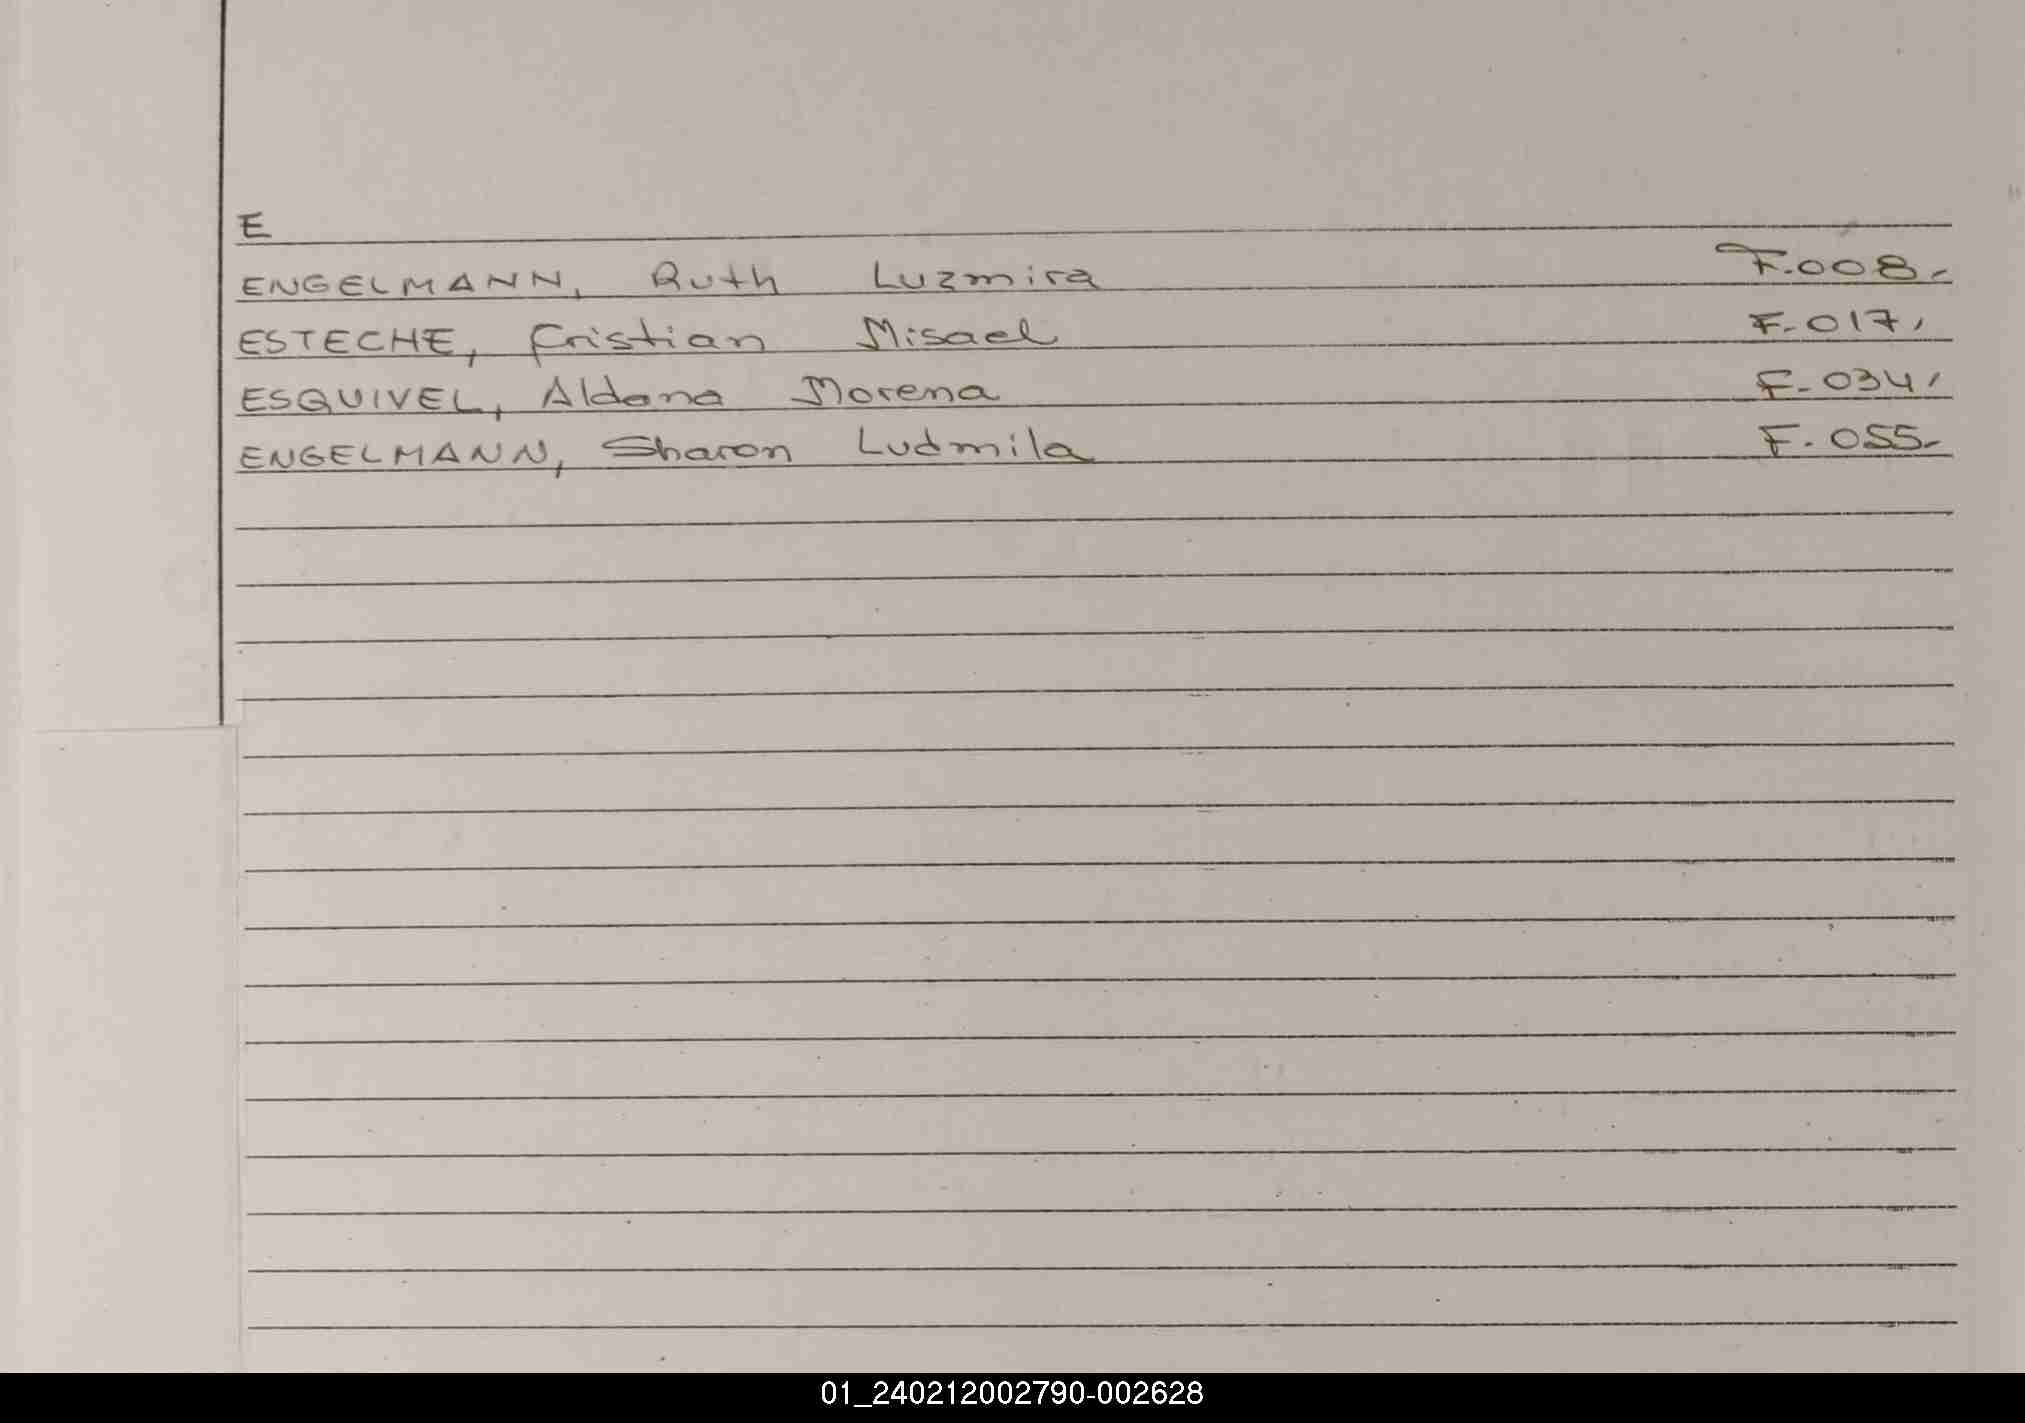 E
ENGELMANN, Ruth Luzmira F.008.-
ESTECHE, Cristian Misael F.017.
ESQUIVEL, Aldana Morena F.034.
ENGELMANN, Sharon Ludmila F.055.-
01_240212002790-002628